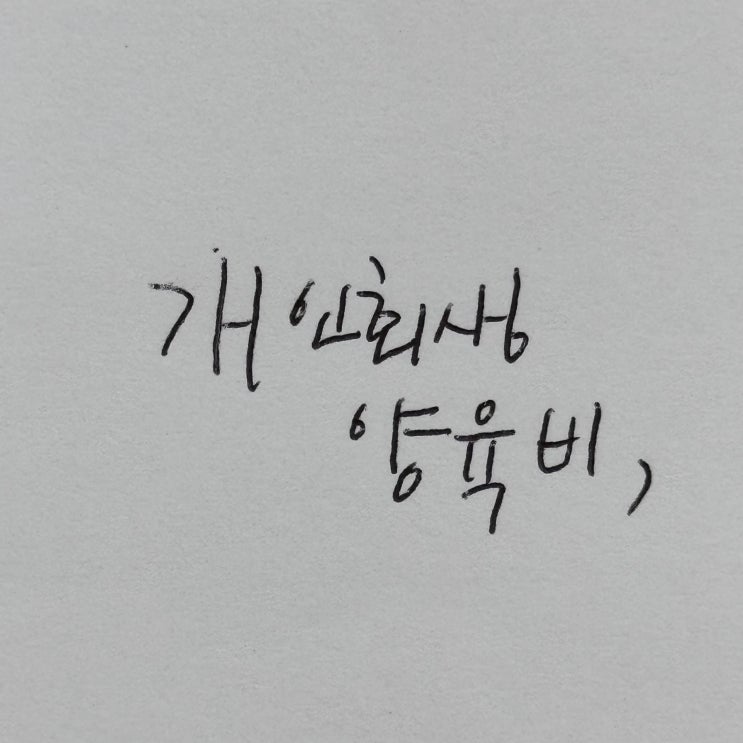 개인회생
양육비,